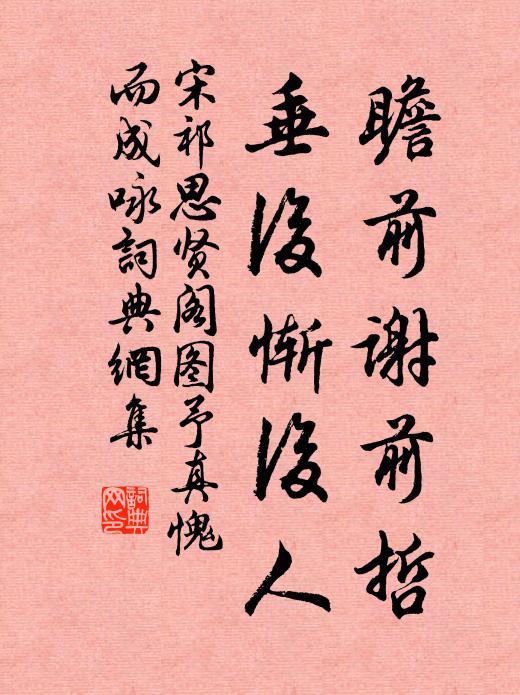 瞻前谢前哲
垂後惭後人
宋祁思贤阁图予真愧
而成咏詞典網集
詞典
网印